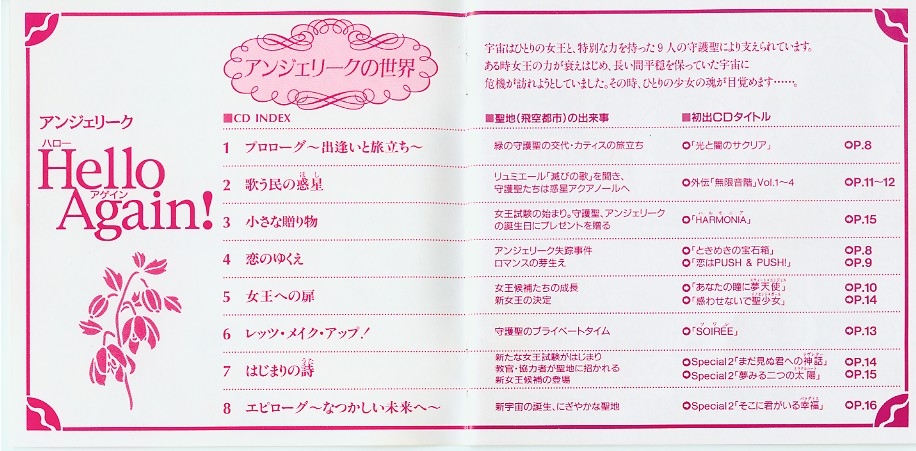 アンジェリークの世界
宇宙はひとりの女王と、特別な力を持った9人の守護聖により支えられています。
ある時女王の力が衰えはじめ、長い間平穏を保っていた宇宙に
危機が訪れようとしていました。その時、ひとりの少女の魂が目覚めます……。
アンジェリーク
ハロー
Hello
アゲイン
Again!
■CD INDEX
■聖地(飛空都市)の出来事
■初出CDタイトル
1 プロローグ〜出逢いと旅立ち〜
緑の守護聖の交代・カティスの旅立ち
「光と闇のサクリア」 P.8
2 歌う民の惑星
ほし
リュミエール「滅びの歌」を聞き、
守護聖たちは惑星アクアノールへ
外伝「無限音階」Vol.1〜4 P.11〜12
3 小さな贈り物
女王試験の始まり。守護聖、アンジェリーク
の誕生日にプレゼントを贈る
ハルモニア
「HARMONIA」 P.15
4 恋のゆくえ
アンジェリーク失踪事件
ロマンスの芽生え
「ときめきの宝石箱」 P.8
「恋はPUSH & PUSH!」 P.9
5 女王への扉
女王候補たちの成長
新女王の決定
「あなたの瞳に夢天使」 P.10
「惑わせないで聖少女」 P.14
6 レッツ・メイク・アップ!
守護聖のプライベートタイム
「SOIRÉE」 P.13
7 はじまりの詩
うた
新たな女王試験がはじまり
教官・協力者が聖地に招かれる
新女王候補の登場
Special2「まだ見ぬ君への神話」 P.14
Special2「夢みる二つの太陽」 P.15
8 エピローグ〜なつかしい未来へ〜
新宇宙の誕生、にぎやかな聖地
Special2「そこに君がいる幸福」 P.16